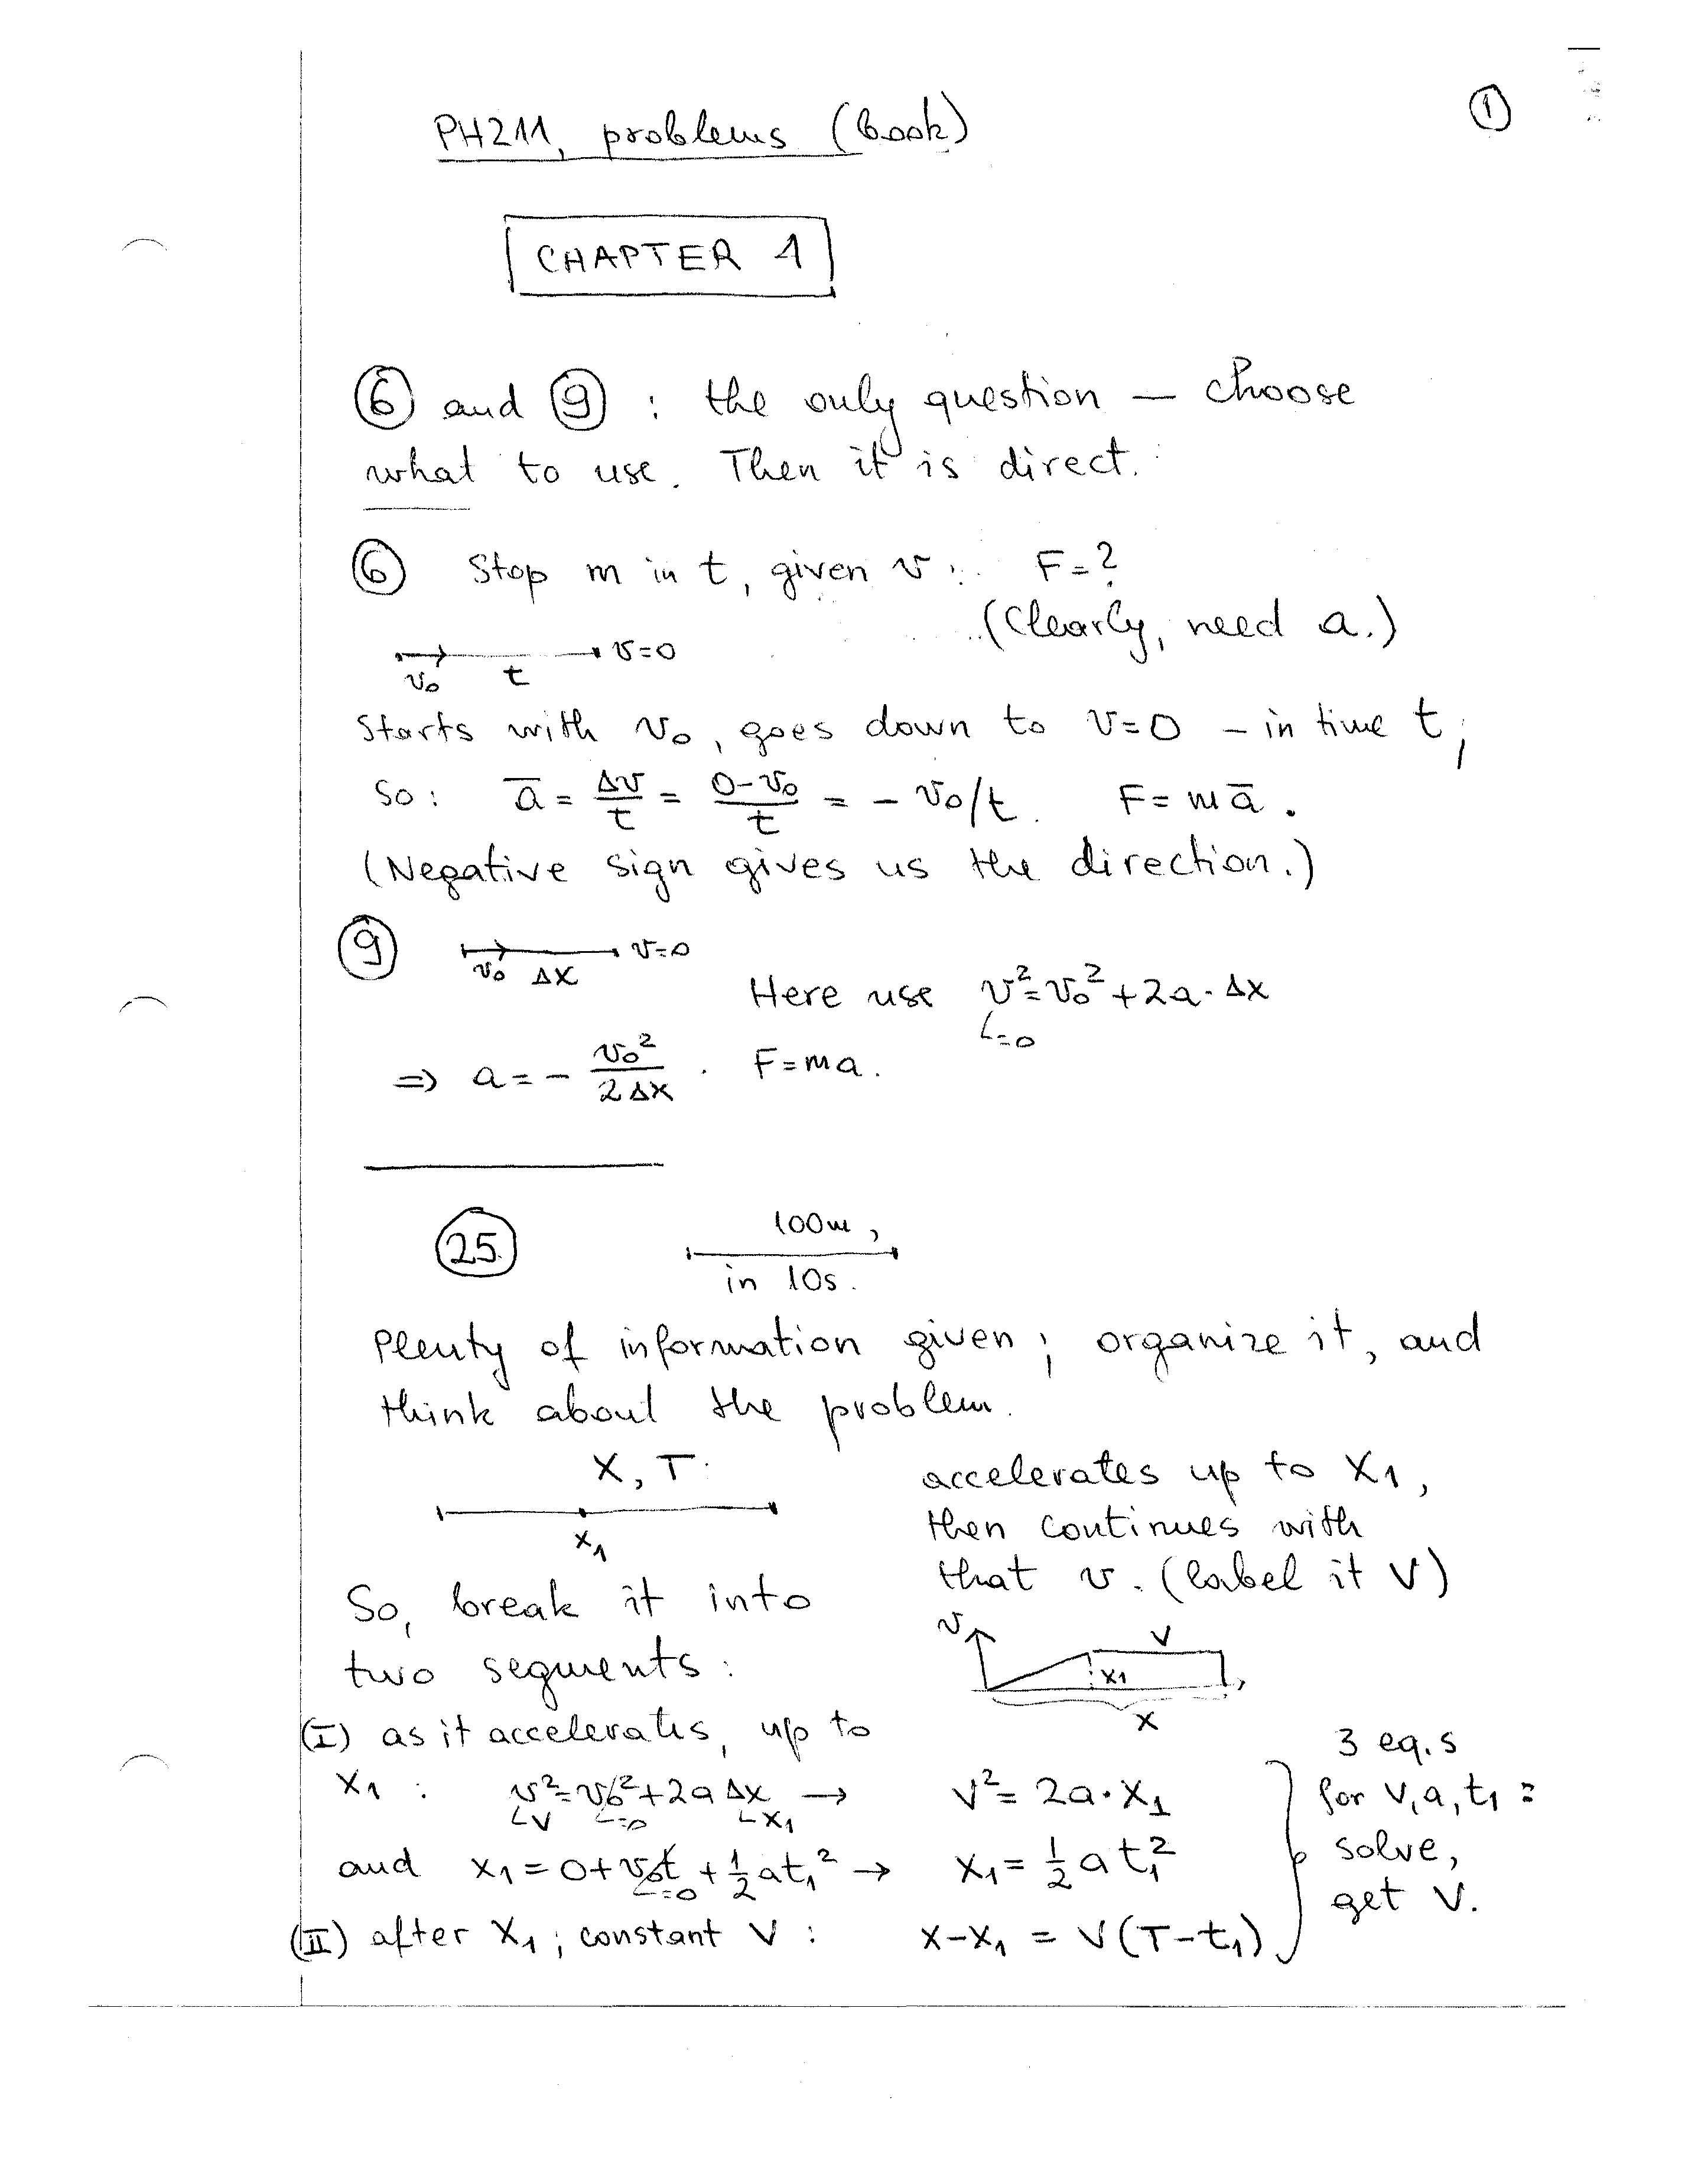 PH211, problems (book)
1
CHAPTER 4
6 and 9 : the only question — choose
what to use. Then it is direct.
6 Stop m in t, given v: F=?
(Clearly, need a.)
v₀ t v=0
Starts with v₀, goes down to v=0 – in time t;
So: a̅ = Δv/t = (0-v₀)/t = - v₀/t. F = ma̅.
(Negative sign gives us the direction.)
9 v₀ Δx v=0
Here use v²=v₀²+2a·Δx
=0
⇒ a = - v₀²/(2Δx). F=ma.
25. 100m,
in 10s.
Plenty of information given; organize it, and
think about the problem.
X, T
x₁
accelerates up to x₁,
then continues with
that v. (label it V)
So, break it into
two segments:
v V x₁ X
(I) as it accelerates, up to
x₁ : v²=v₀²+2aΔx → V²= 2a·x₁
V =0 x₁
and x₁=0+v₀t+½at₁² → x₁=½at₁²
=0
(II) after x₁; constant V : X-x₁ = V(T-t₁)
3 eq.s
for V, a, t₁ :
solve,
get V.